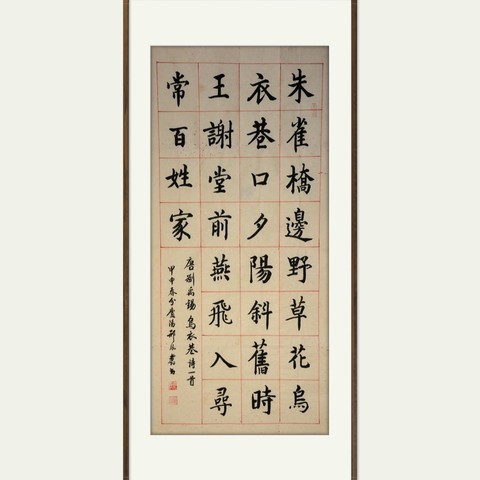 朱雀橋邊野草花烏
衣巷口夕陽斜舊時
王謝堂前燕飛入尋
常百姓家
唐劉禹錫烏衣巷詩一首
甲申春分